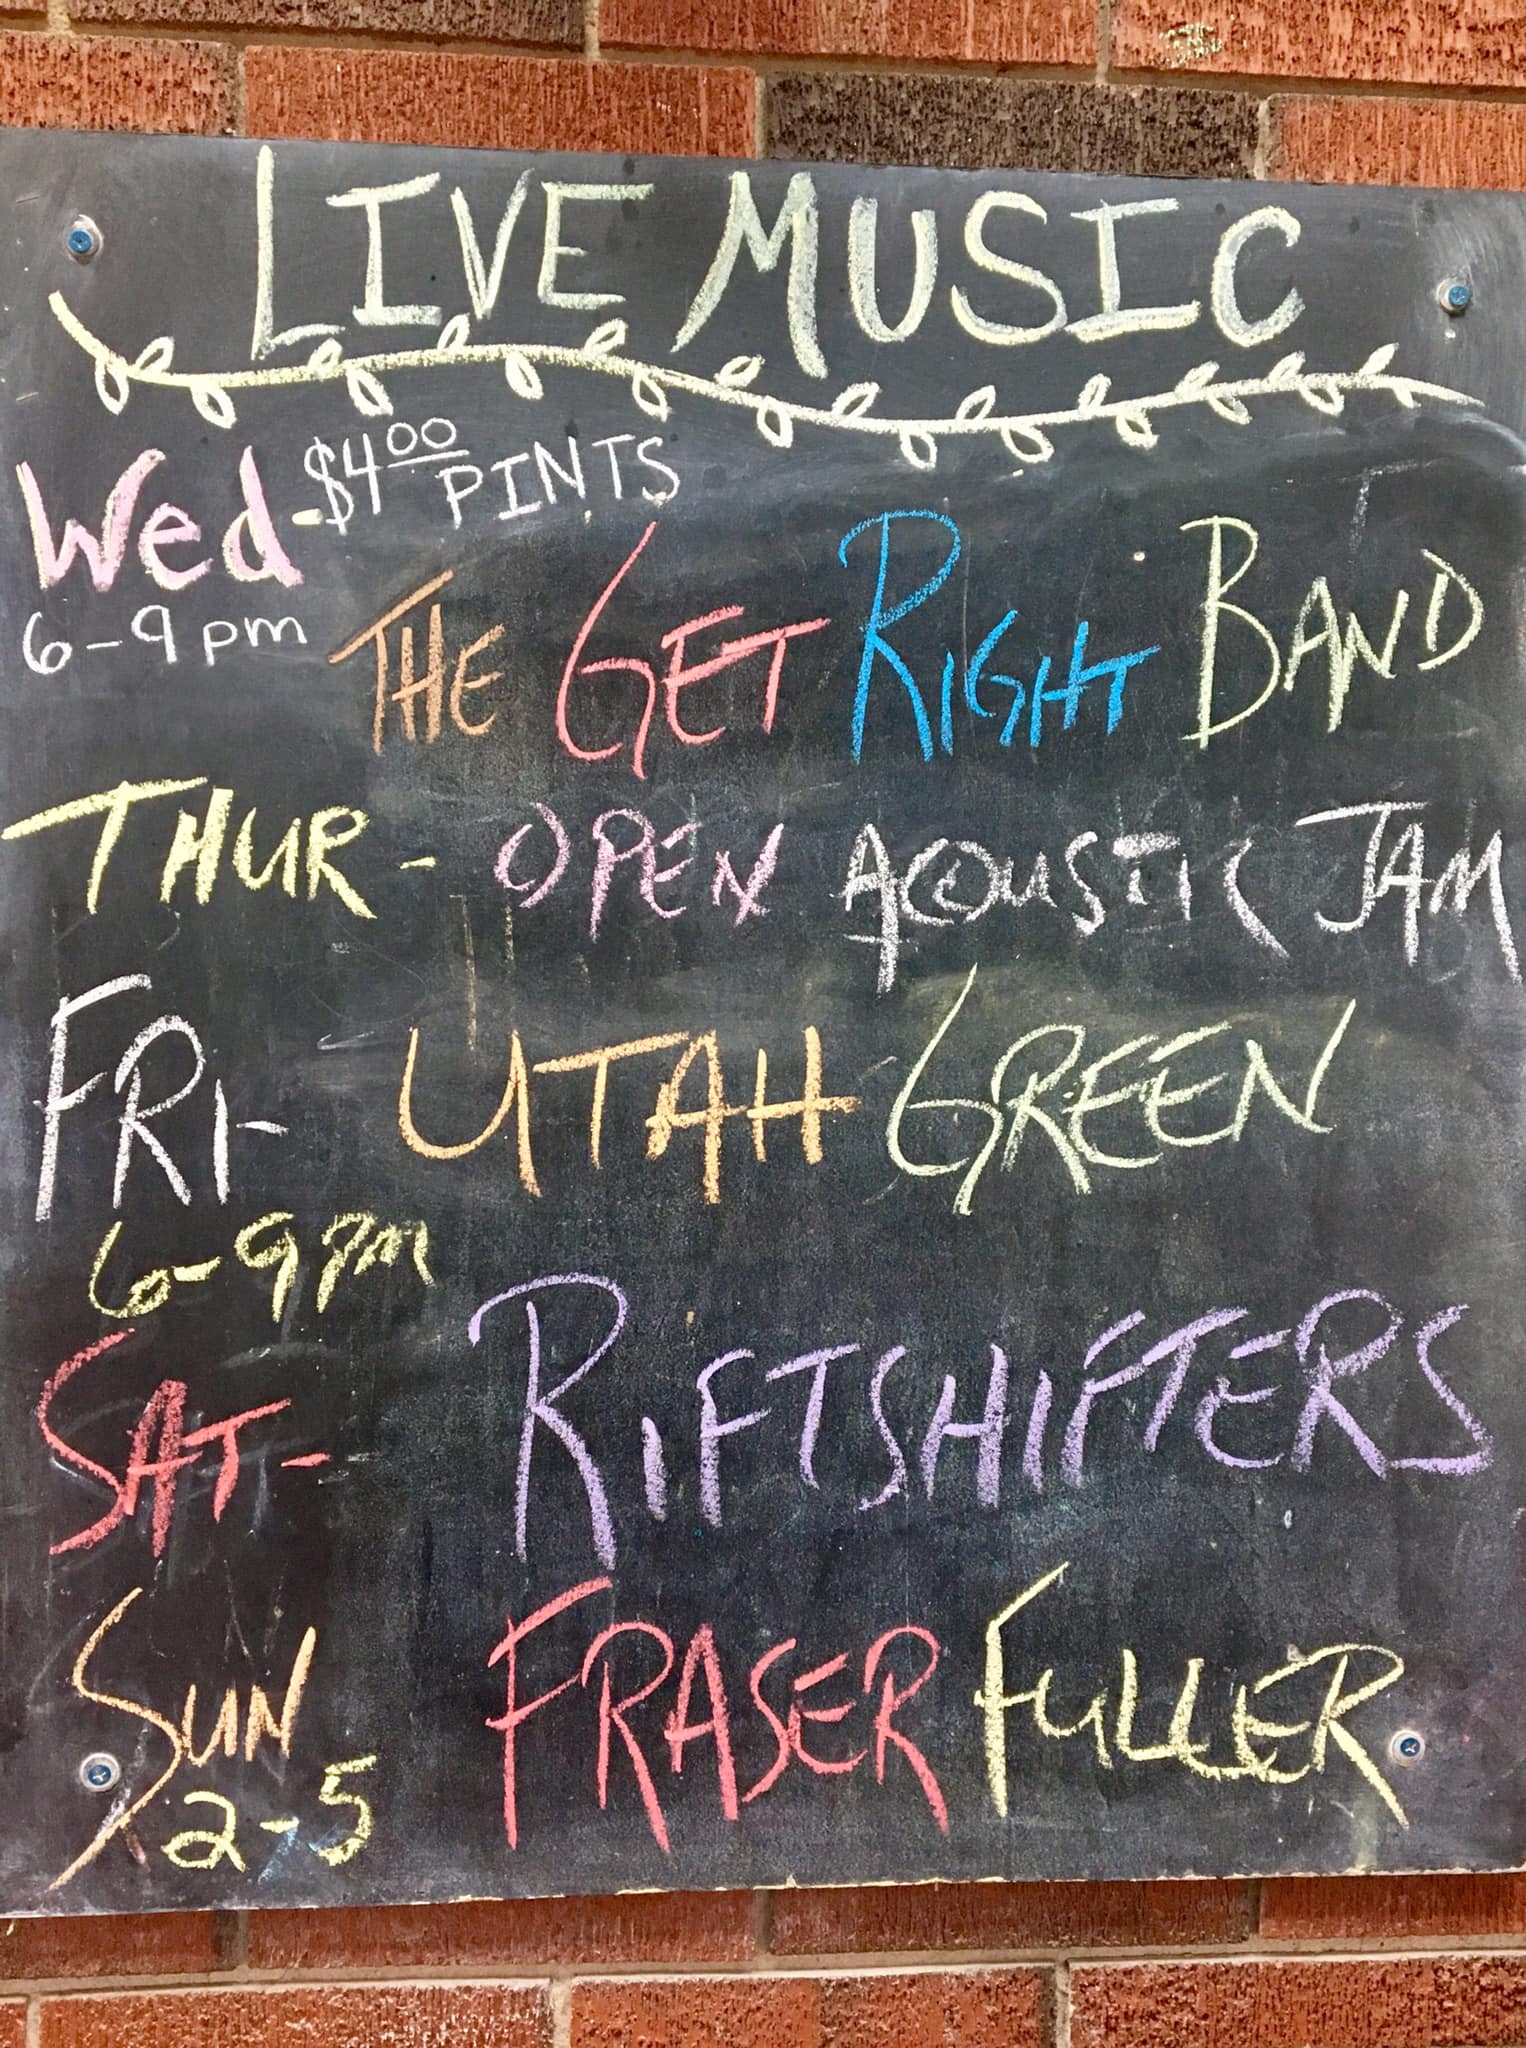 LIVE MUSIC
Wed - $4.00 PINTS
6-9pm THE GET RIGHT BAND
THUR - OPEN ACOUSTIC JAM
FRI- UTAH GREEN
6-9PM
SAT- RIFTSHIFTERS
SUN FRASER FULLER
2-5